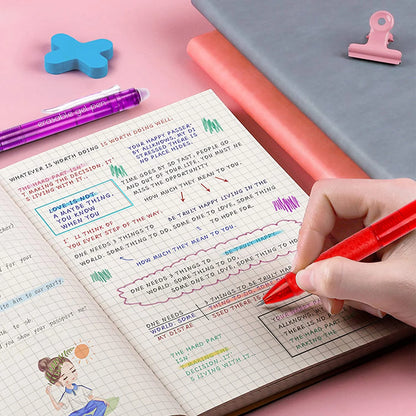 erasable gel pen
WHATEVER IS WORTH DOING IS WORTH DOING WELL.
YOUR HAPPY PASSER-
BY ALLKNOWS, MY DI
STRESSED THERE IS
NO PLACE HIDES.
THE HARD PART ISN'
T MAKING THE DECISION. IT'
S LIVING WITH IT.
TIME GOES BY SO FAST, PEOPLE GO
AND OUT OF YOUR LIFE. YOU MUST NE
MISS THE OPPORTUNITY
HOW MUCH THEY MEAN TO YOU.
LOVE IS NOT
A MAYBE THING.
YOU KNOW WHEN
YOU
I' LL THINK OF
YOU EVERY STEP OF THE WAY.
BE TRULY HAPPY LIVING IN THE
ONE NEEDS 3 THINGS TO
WORLD: SOME THING TO DO, SOME ONE TO LOVE, SOME THING
TO HOPE FOR.
HOW MUCH THEY MEAN TO YOU.
ONE NEEDS 3 THINGS TO BE TRULY HAPPY
WORLD: SOME THING TO DO, SOME ONE TO LOVE
ONE NEEDS
WORLD: SOME
MY DISTRE
3 THINGS TO BE TRULY
THING TO DO, SOME
SSED THERE IS NO
ALLKNOWS
THERE IS NO
MAKING THE
THE HARD PART
ISN'
T MAKING THE
DECISION. IT'
S LIVING WITH IT.
him to our party.
you show your passport